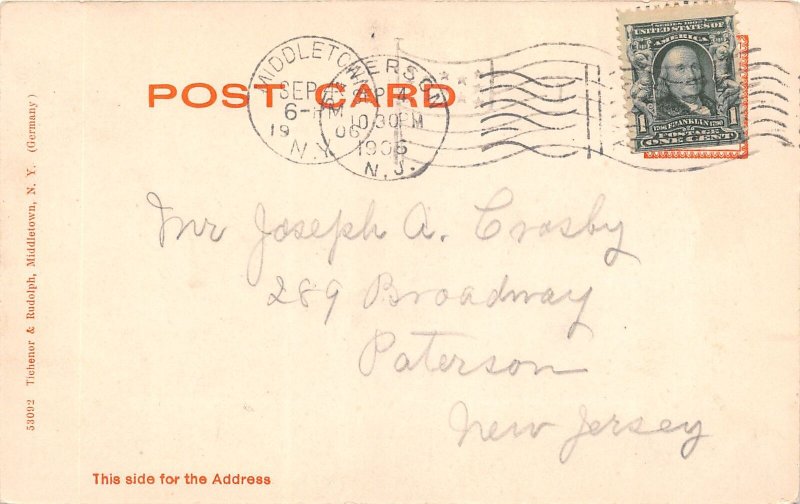 POST CARD
MIDDLETOWN
SEP
6-PM
19 06
N.Y.
PATERSON
SEP 4
10 30 PM
1906
N.J.
SERIES 1902
UNITED STATES OF
AMERICA
1 FRANKLIN 1
POSTAGE
ONE CENT
Mr Joseph A. Crosby
289 Broadway
Paterson
New Jersey
53092 Tichenor & Rudolph, Middletown, N. Y. (Germany)
This side for the Address